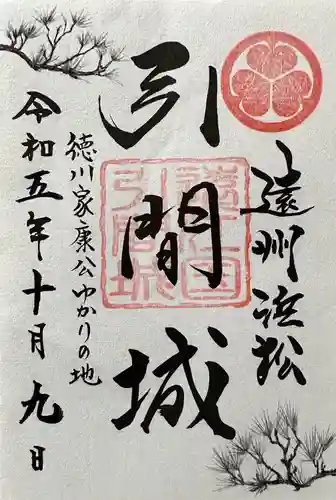 遠州浜松
引間城
徳川家康公ゆかりの地
令和五年十月九日